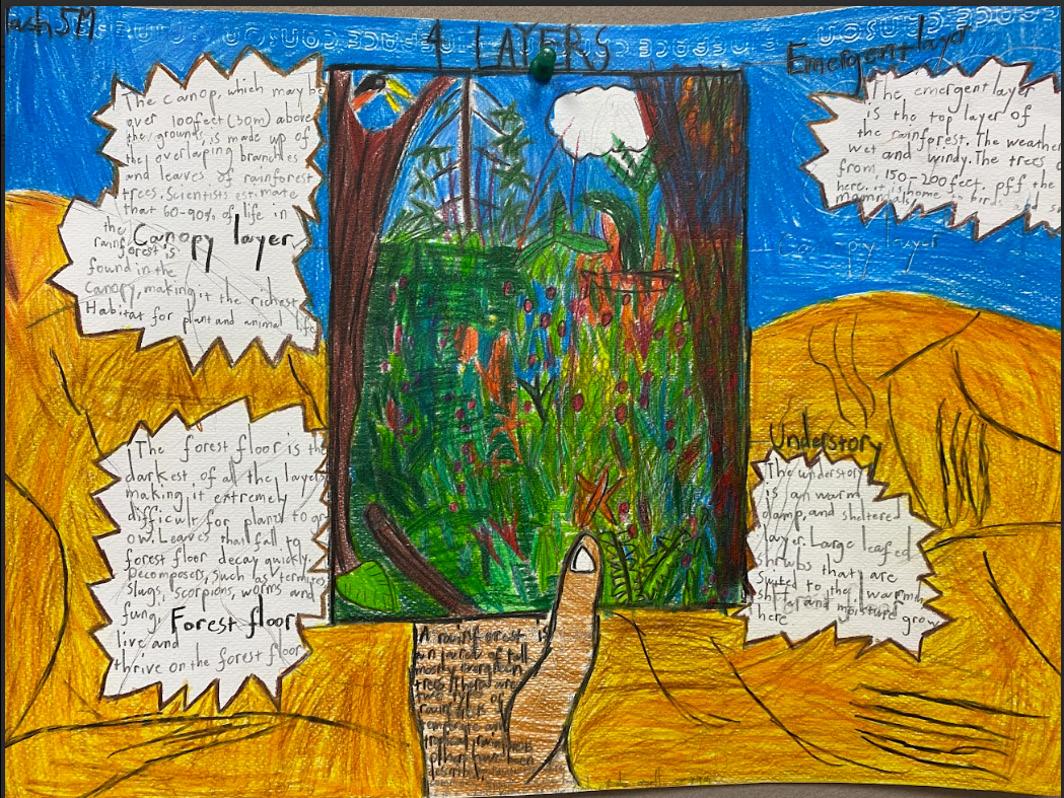 5M
4 LAYERS
Emergent layer
The canop, which may be
over 100feet (30m) above
the grounds, is made up of
the overlaping branches
and leaves of rainforest
trees. Scientists estimate
that 60-90% of life in
the
Canopy layer
rainforest is
found in the
Canopy, making it the richest
Habitat for plant and animal life
The emergent layer
is the top layer of
the rainforest. The weather
wet and windy. The trees
from 150-200feet. pff the
here. it is home to birds and
mammals
Canopy layer
The forest floor is the
darkest of all the layers
making it extremely
difficult for plant to gr
ow. Leaves that fall to
forest floor decay quickly.
Decomposers, such as termites
slugs, scorpions, worms and
fung,
Forest floor
live and
thrive on the forest floor
Understory
The understory
is an warm
damp, and sheltered
layer. Large leafed
shrubs that are
suited to the warmm
and moisture grow
here
A rainforest is
an of tall
mostly evergreen
trees there are
of